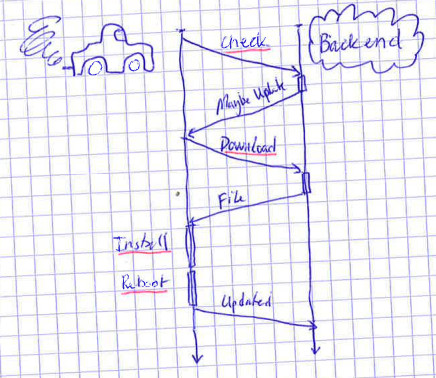 Check
Backend
Maybe Update
Download
File
Install
Reboot
Updated